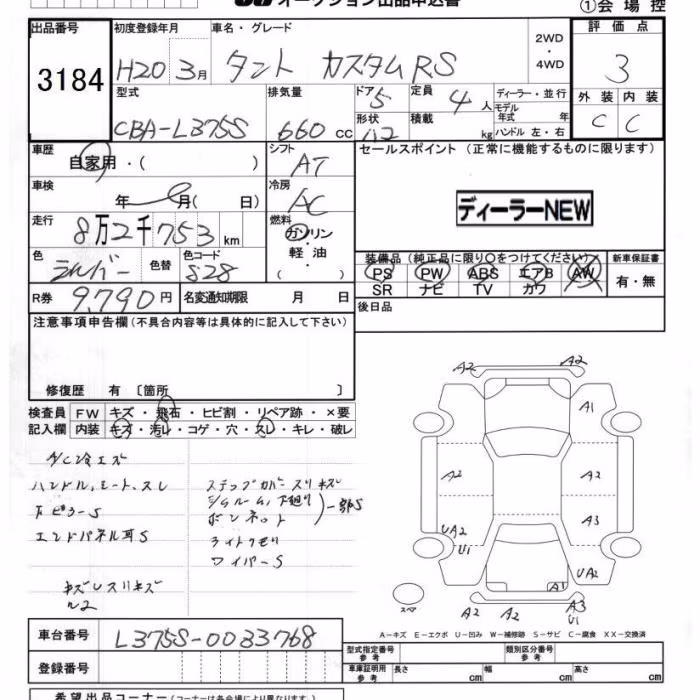 オークション出品申込書
①会場控
出品番号 初度登録年月 車名・グレード 評価点
3184 H20 3月 タント カスタムRS 2WD ・ 4WD 3
型式 排気量 ドア 5 定員 4人 ディーラー・並行 外装 内装
CBA-L375S 660cc 形状 積載 kg モデル年式 年 ハンドル 左・右 C C
車歴 自家用・( ) シフト AT セールスポイント (正常に機能するものに限ります)
車検 年 月( 日) 冷房 AC
ディーラーNEW
走行 8万2千753km 燃料 ガソリン 軽油 ( )
色 シルバー 色替 色コード S28
装備品 (純正品に限り○をつけてください) 新車保証書
PS PW ABS エアB AW 有・無
SR ナビ TV カワ
R券 9,790円 名変通知期限 月 日
後日品
注意事項申告欄(不具合内容等は具体的に記入して下さい)
修復歴 有 〔箇所 〕
検査員 FW キズ・飛石・ヒビ割・リペア跡・×要
記入欄 内装 キズ・汚れ・コゲ・穴・スレ・キレ・破レ
ハンドル、シート、スレ
エンドパネル耳S
ステップカバースリキズ
ボンネット
一部S
ライトクモリ
ワイパーS
A2 A2
A1
A2 A2
A3
UA2 U1
UA2
A1
A2 A2 A3 U1
スペア
A-キズ E-エクボ U-凹み W-補修跡 S-サビ C-腐食 XX-交換済
車台番号 L375S-0033768
登録番号
型式指定番号 参考 類別区分番号 参考
車庫証明用 参考 長さ cm 幅 cm 高さ cm
希望出品コーナー(コーナーは各会場により異なります)